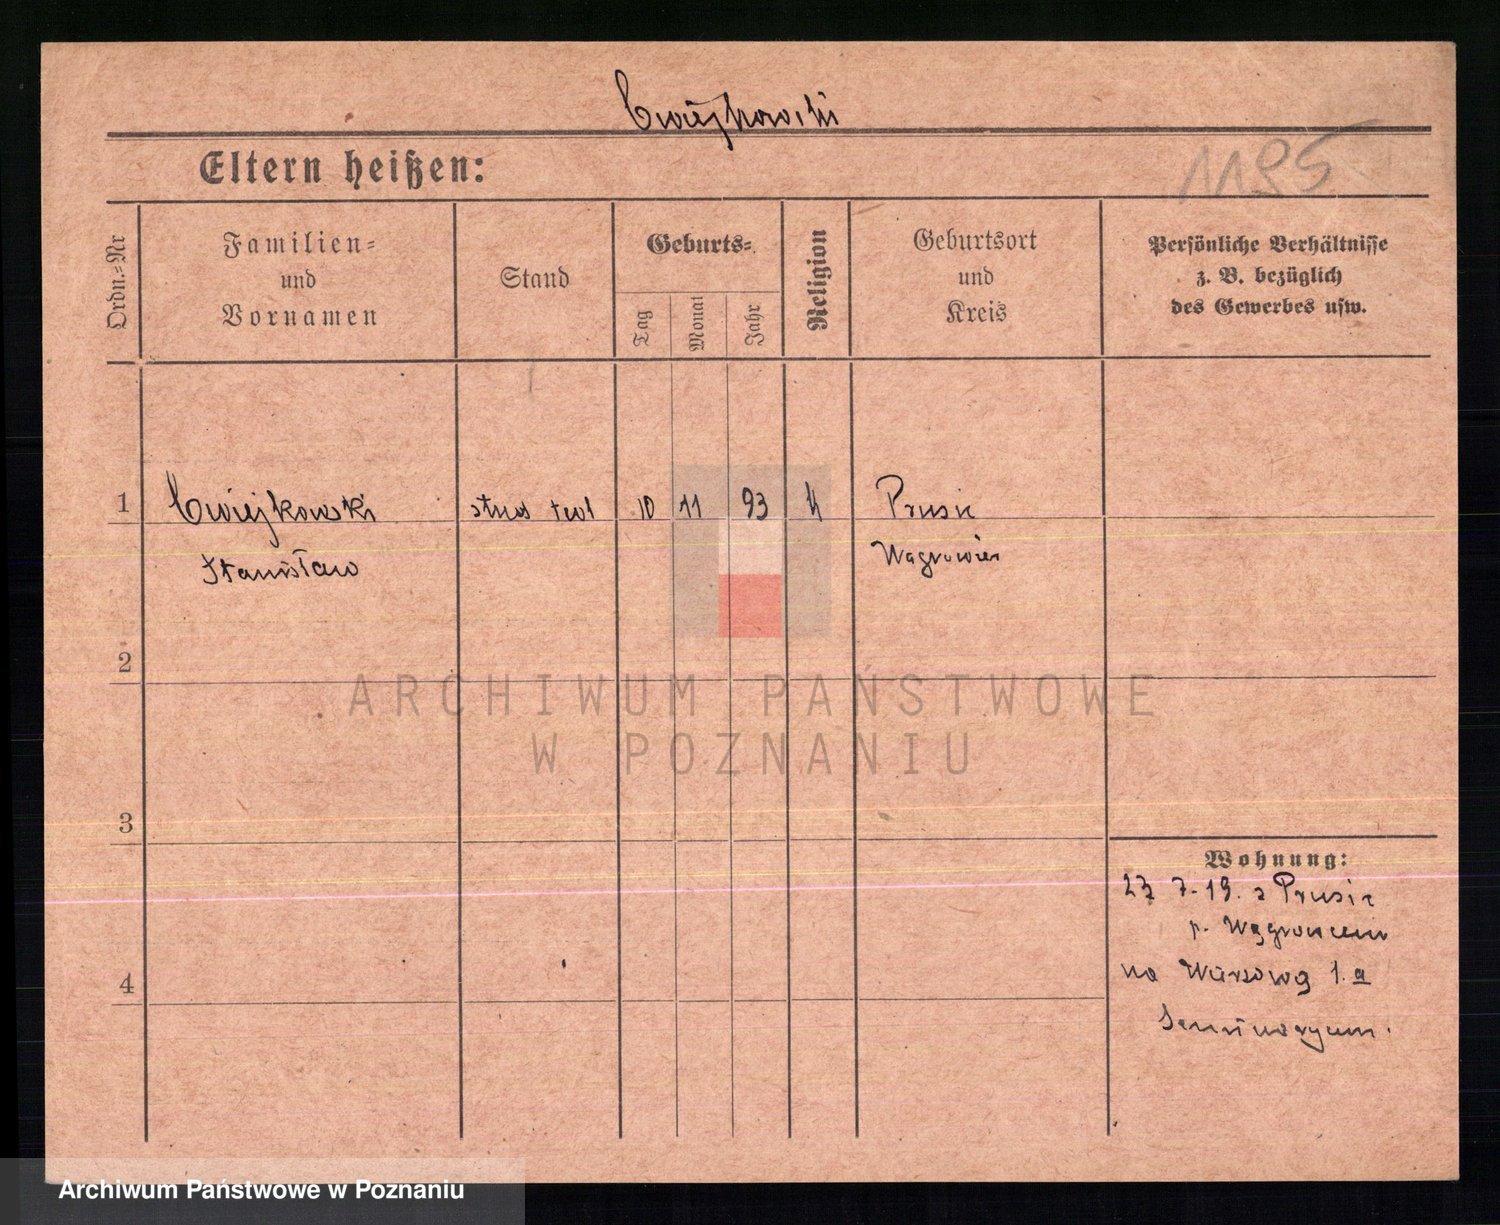 Cwiejkowski
Eltern heißen:
1195
Ordn.=Nr
Familien=
und
Vornamen
Stand
Geburts=
Tag
Monat
Jahr
Religion
Geburtsort
und
Kreis
Persönliche Verhältnisse
z. B. bezüglich
des Gewerbes usw.
1
Cwiejkowski stud teol 10 11 93 k Prusic
Stanisław Wągrowiec
2
ARCHIWUM PAŃSTWOWE
W POZNANIU
3
Wohnung:
27 7.19. z Prusic
p. Wągrowcem
na 1. a
Seminaryum.
4
Archiwum Państwowe w Poznaniu